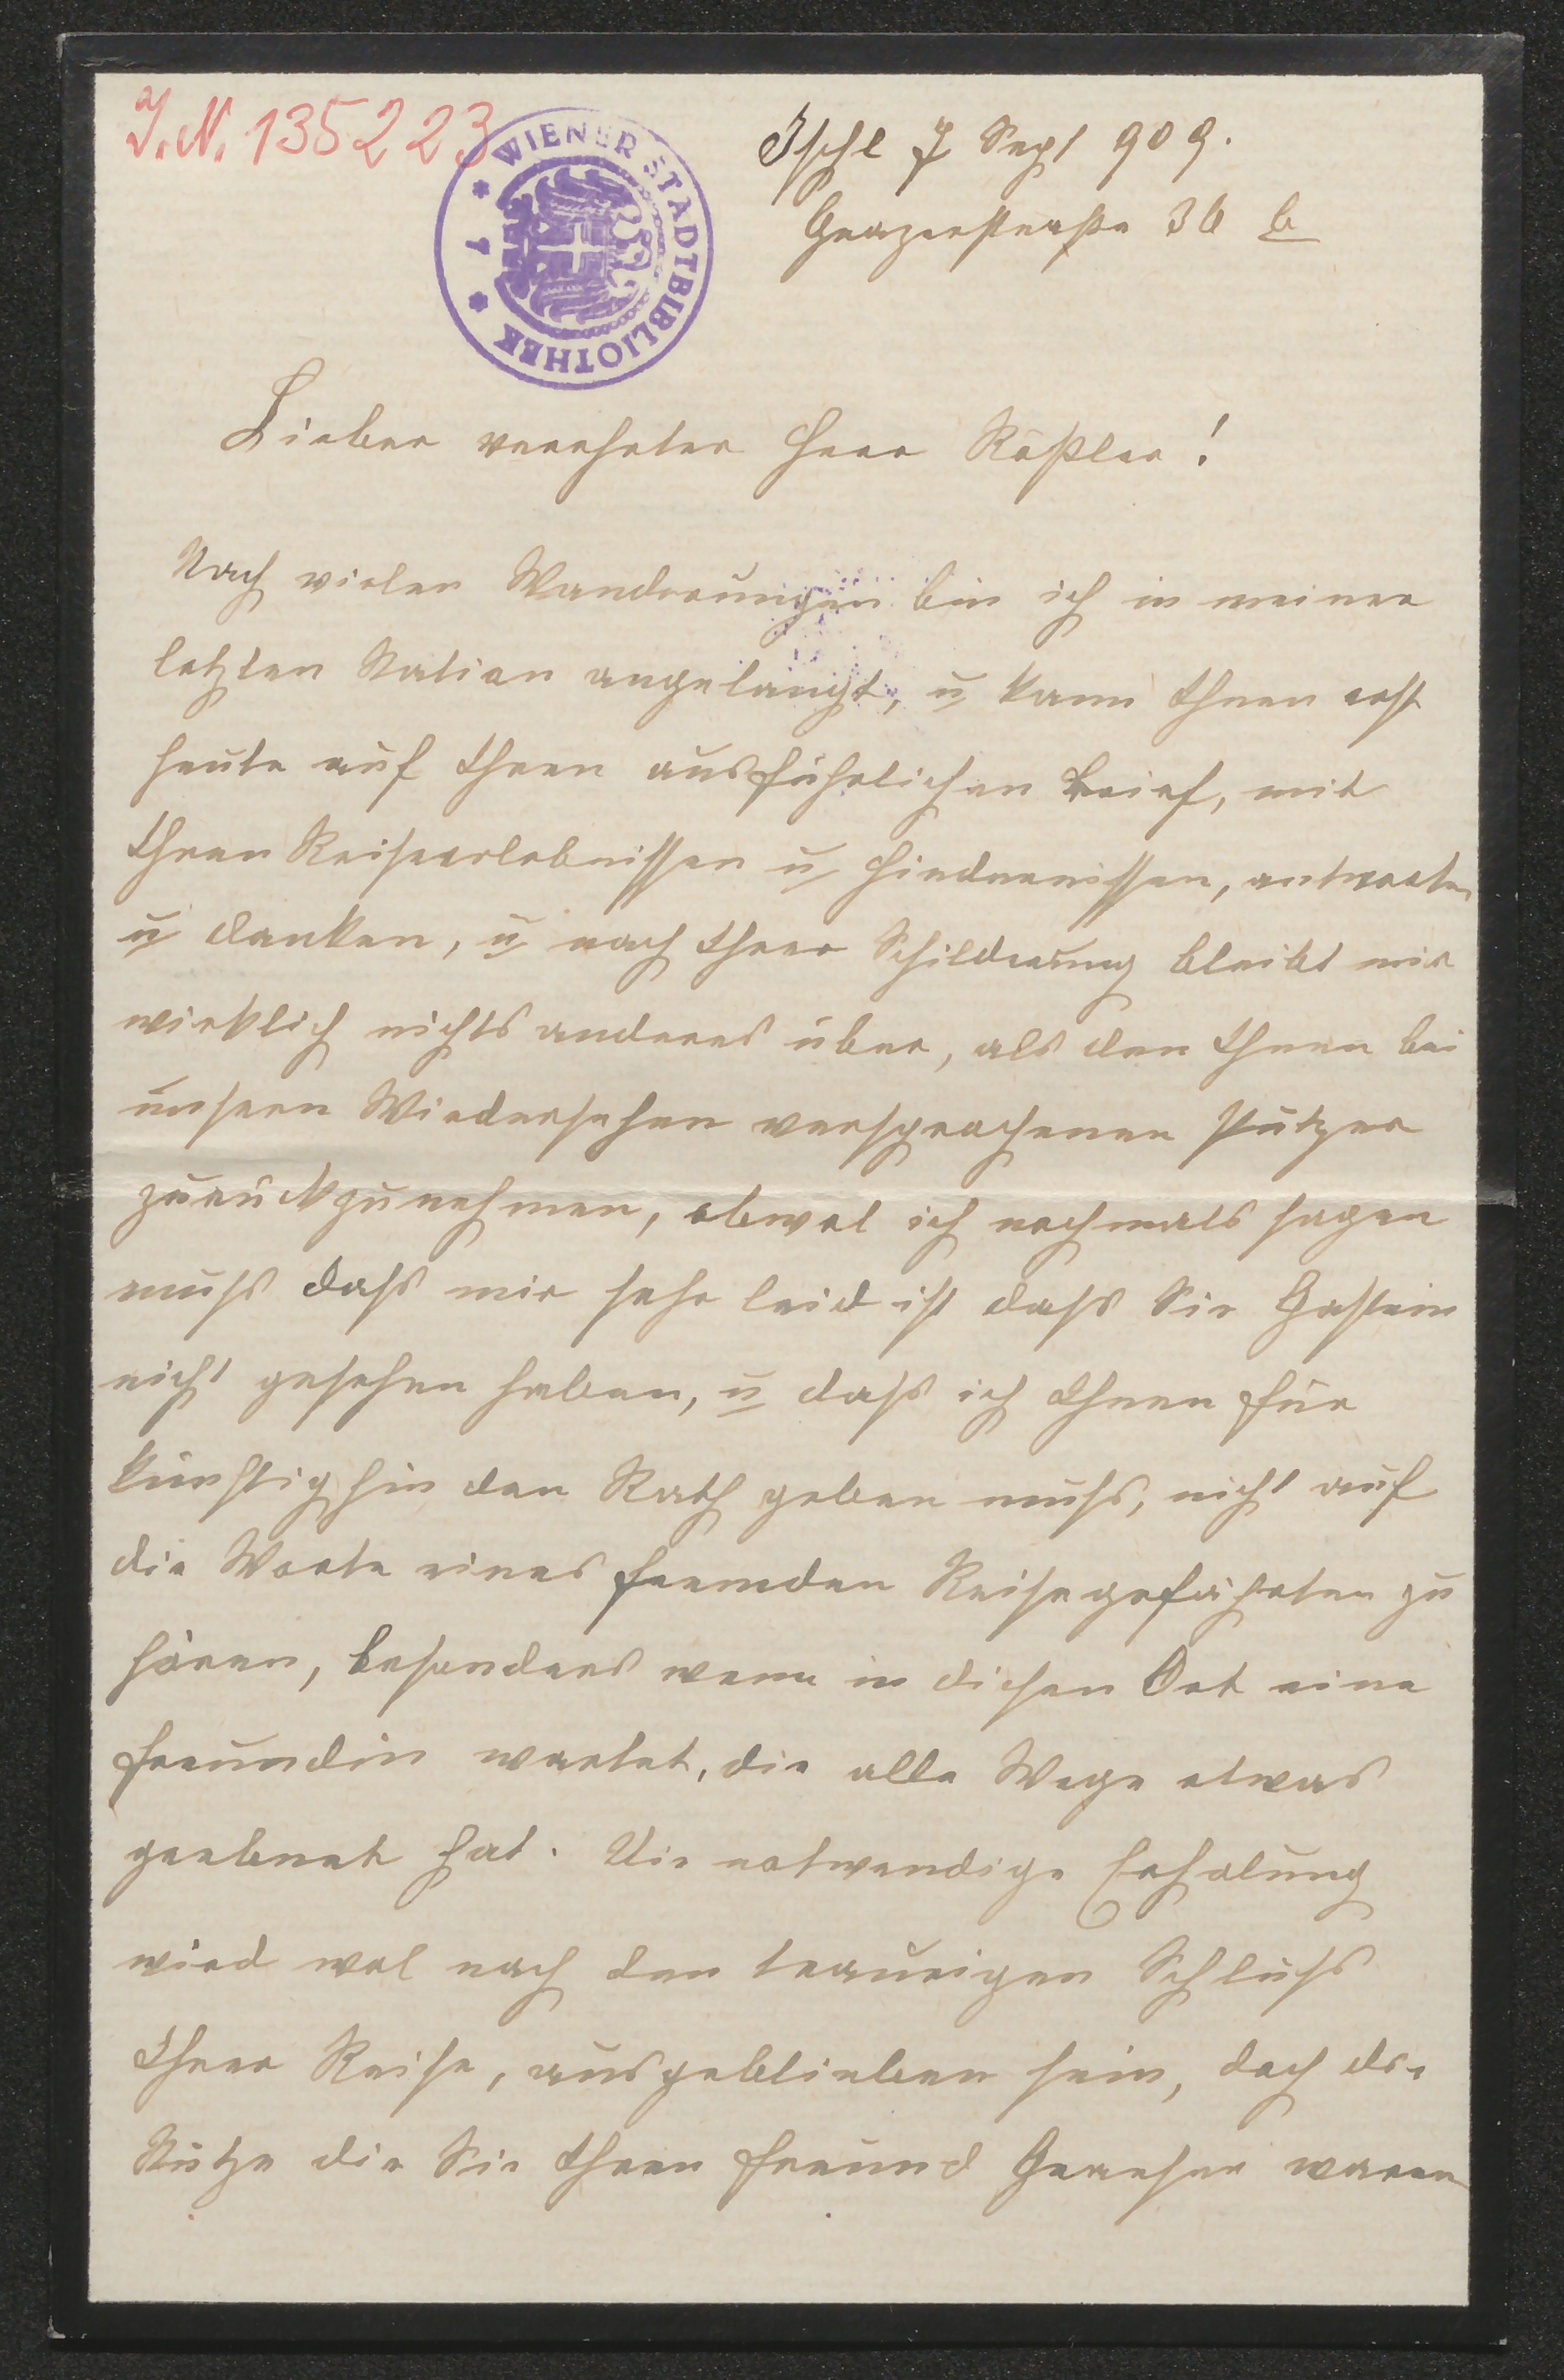 I.N. 135223
WIENER STADTBIBLIOTHEK
Ischl 7 Sept 909.
Grazerstraße 36 b
Lieber verehrter Herr Roßler!
Nach vielen Wanderungen bin ich in meiner
letzten Station angelangt, u kann Ihnen erst
heute auf Ihren ausführlichen Brief, mit
Ihren Reiseerlebnissen u Hindernissen, antworten
u danken, u nach Ihrer Schilderung bleibt mir
wirklich nichts anderes über, als den Ihnen bei
unsern Wiedersehen versprochenen Putzer
zurückzunehmen, obwol ich nochmals sagen
muss dass mir sehr leid ist dass Sie Gastein
nicht gesehen haben, u dass ich Ihnen für
künftighin den Rath geben muss, nicht auf
die Worte eines fremden Reisegefährten zu
hören, besonders wenn in diesen Ort eine
Freundin wartet, die alle Wege etwas
geebnet hat. Die notwendige Erholung
wird wol nach den traurigen Schluss
Ihrer Reise, ausgeblieben sein, doch die
Stütze die Sie Ihren Freund Graeser waren